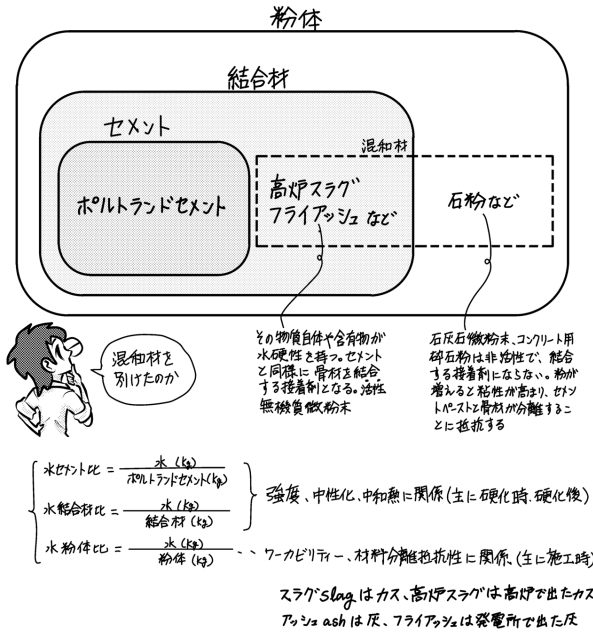 粉体
結合材
セメント
混和材
ポルトランドセメント
高炉スラグ
フライアッシュ など
石粉など
混和材を
別けたのか
その物質自体や含有物が
水硬性を持つ。セメント
と同様に骨材を結合
する接着剤となる。活性
無機質微粉末
石灰石微粉末、コンクリート用
砕石粉は非活性で、結合
する接着剤にならない。粉が
増えると粘性が高まり、セメン
トペーストと骨材が分離するこ
とに抵抗する
水セメント比 = 水 (kg) / ポルトランドセメント(kg)
水結合材比 = 水 (kg) / 結合材 (kg)
強度、中性化、中和熱に関係(主に硬化時・硬化後)
水粉体比 = 水 (kg) / 粉体 (kg) ‥ ワーカビリティー、材料分離抵抗性に関係、(主に施工時)
スラグslagはカス、高炉スラグは高炉で出たカス
アッシュashは灰、フライアッシュは発電所で出た灰